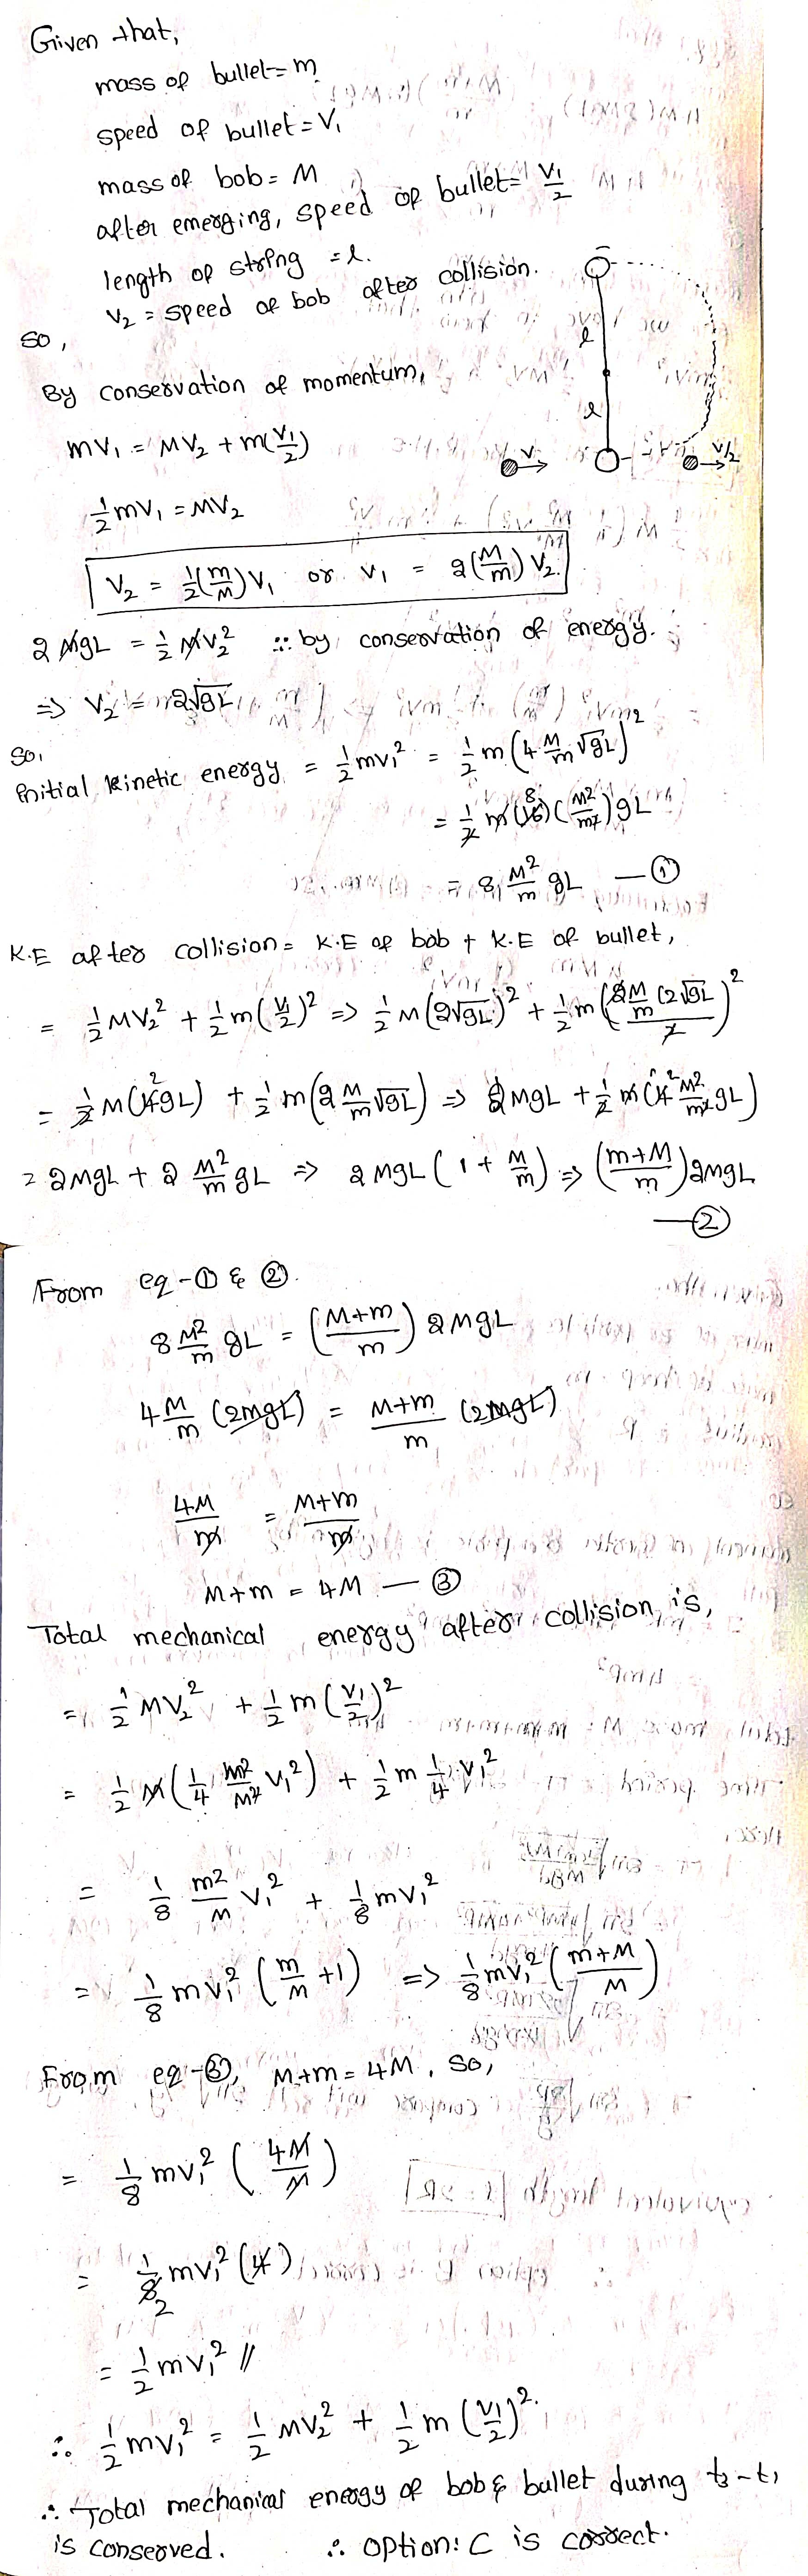 Given that,
mass of bullet = m
speed of bullet = V₁
mass of bob = M
after emerging, speed of bullet = V₁/2
length of string = l.
V₂ = speed of bob after collision.
so,
By conservation of momentum,
mV₁ = MV₂ + m(V₁/2)
l
l
V
V/2
1/2 mV₁ = MV₂
V₂ = 1/2(m/M)V₁ or V₁ = 2(M/m)V₂.
2MgL = 1/2 MV₂² ∴ by conservation of energy.
⇒ V₂ = 2√gL
So,
initial kinetic energy = 1/2 mV₁² = 1/2 m(4 M/m √gL)²
= 1/2 m(16)(M²/m²)gL 8
= 8 M²/m gL —①
K.E after collision = K.E of bob + K.E of bullet,
= 1/2 MV₂² + 1/2 m(V₁/2)² ⇒ 1/2 M(2√gL)² + 1/2 m(2M/m (2√gL)/2)²
= 1/2 M(4gL) + 1/2 m(2 M/m √gL) ⇒ 2MgL + 1/2 m(4 M²/m² gL)
= 2MgL + 2 M²/m gL ⇒ 2MgL(1 + M/m) ⇒ (m+M/m)2MgL
—②
From eq-① & ②.
8 M²/m gL = (M+m/m) 2MgL
4 M/m (2MgL) = M+m/m (2MgL)
4M/m = M+m/m
M+m = 4M —③
Total mechanical energy after collision is,
= 1/2 MV₂² + 1/2 m(V₁/2)²
= 1/2 M(1/4 m²/M² V₁²) + 1/2 m 1/4 V₁²
= 1/8 m²/M V₁² + 1/8 mV₁²
= 1/8 mV₁²(m/M +1) ⇒ 1/8 mV₁²(m+M/M)
From eq-③, M+m = 4M, so,
= 1/8 mV₁²(4M/M)
= 1/8 mV₁²(4) 2
= 1/2 mV₁² //
∴ 1/2 mV₁² = 1/2 MV₂² + 1/2 m(V₁/2)².
∴ Total mechanical energy of bob & bullet during t₃-t₁
is conserved. ∴ option: C is correct.